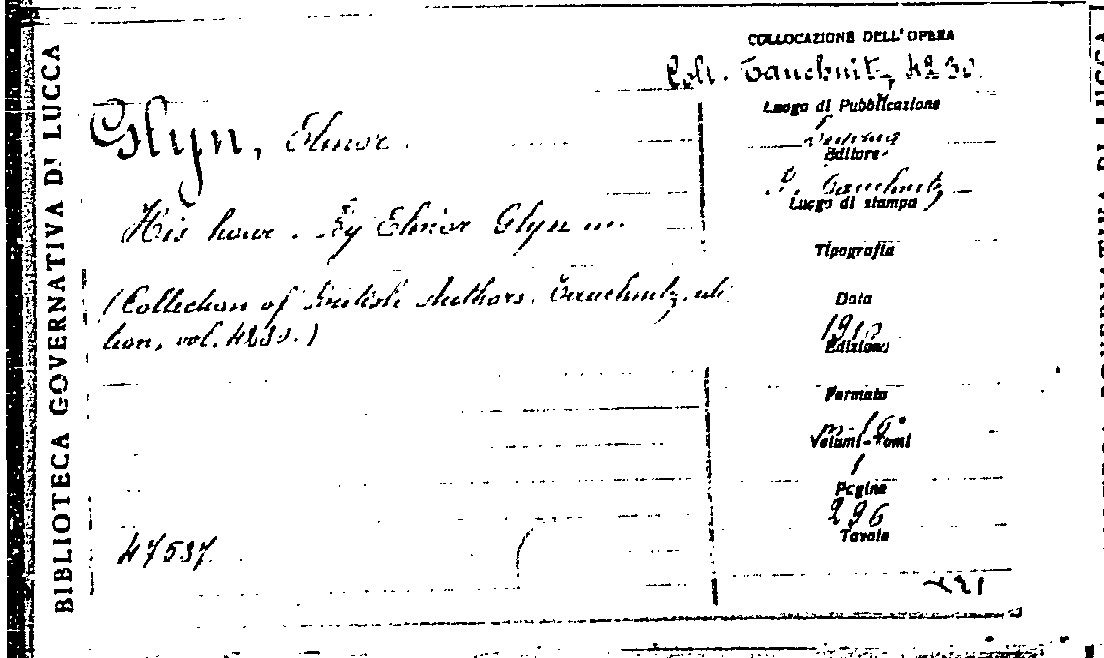 BIBLIOTECA GOVERNATIVA DI LUCCA
COLLOCAZIONE DELL'OPERA
Coll. Tauchnitz, 4230.
Glyn, Elinor.
His hour. By Elinor Glyn ...
(Collection of British Authors. Tauchnitz edi
tion, vol. 4230.)
47537
Luogo di Pubblicazione
Editore
B. Tauchnitz
Luogo di stampa
Tipografia
Data
1910
Edizione
Formato
in 16°
Volumi-Tomi
1
Pagine
296
Tavole